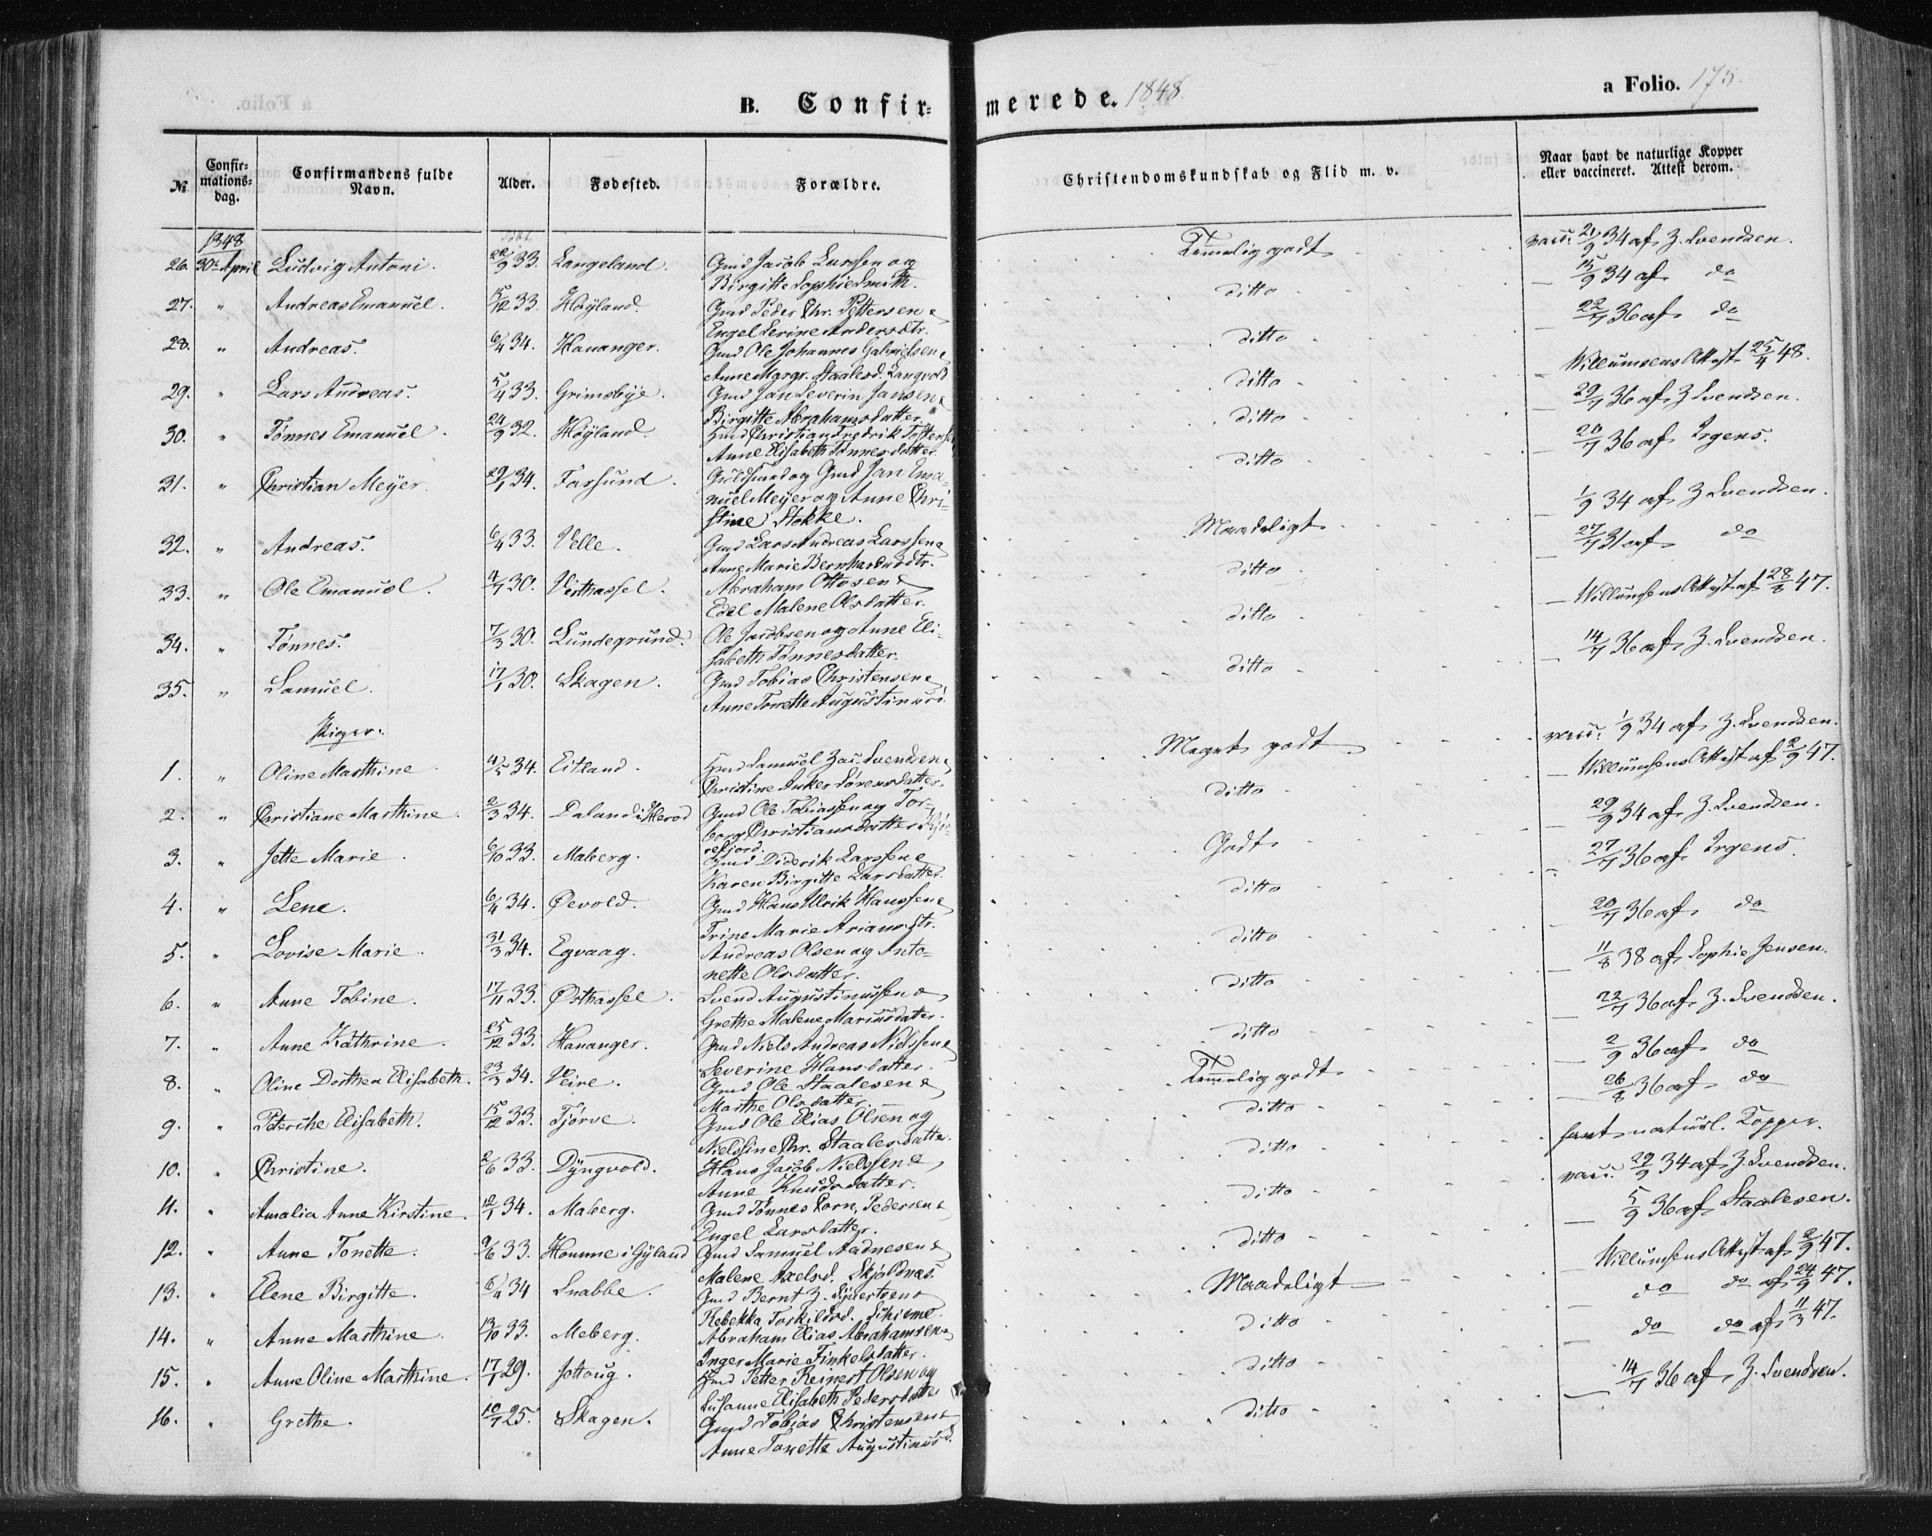 B. Confir-
merede. 1848.
a Folio. 175.
№
Confir-
mations-
dag.
Confirmandens fulde
Navn.
Alder.
Fødested.
Forældre.
Christendomskundskab og Flid m. v.
Naar havt de naturlige Kopper
eller vaccineret. Attest derom.
1848
26. 30te April Ludvig Antoni. 22/9 33. Langeland. Gmd Jacob Larssen og
Birgitte Sophie Smith.
Temmelig godt vacc. 21/9 34 af Z. Svendsen.
27. " Andreas Emanuel. 15/12 33. Høyland. Gmd Peder Chr. Pettersen &
Engel Serine Andersdtr.
ditto — 15/9 34 af do
28. " Andreas. 6/4 34. Hananger. Gmd Ole Johannes Gabrielsen &
Anne Mgrgr. Staalesd. Langvold
ditto — 22/7 36 af do
29. " Lars Andreas. 5/4 33. Grimsbye. Gmd Jan Severin Jansen &
Birgitte Abrahamsdatter.
ditto Willumsens Attest 25/4 48.
30. " Tønnes Emanuel. 24/9 32. Høyland. Hmd Christian Fredrik
Anne Elisabeth Tønnesdatter.
ditto — 29/7 36 af Z Svendsen.
31. " Christian Meyer. 29/1 34. Farsund. Guldsmed og Gmd Jan Ema-
nuel Meyer og Anne Chri-
stine Stokke.
ditto — 20/7 36 af Irgens.
32. " Andreas. 6/4 33. Velle. Gmd Lars Andreas Larssen &
Anne Marie Bernhardsdtr.
Maadeligt 1/9 34 af Z Svendsen.
33. " Ole Emanuel. 4/7 30. Vesthassel. Abraham Ottosen &
Edel Malene Olsdatter.
ditto — 27/7 31 af do
34. " Tønnes. 7/3 30. Lundegrund. Ole Jacobsen og Anne Eli-
sabeth Tønnesdatter.
ditto — Willumsens Attest af 28/8 47.
35. " Samuel. 17/1 30. Skagen. Gmd Tobias Christensen &
Anne Tonette Augustinusd.
ditto — 14/7 36 af Z. Svendsen.
Piger.
1. " Oline Marthine 4/5 34. Eitland. Hmd Samuel Zac. Svendsen &
Christine Anker Sørensdatter.
Meget godt vacc. 1/9 34 af Z. Svendsen.
2. " Christiane Marthine. 2/3 34. Daland i Herod Gmd Ole Tobiassen og Tor-
borg Christiansdatter
refjord.
ditto — Willumsens Attest af 2/9 47.
3. " Jette Marie. 6/10 33. Maberg. Gmd Diderik Larssen &
Karen Birgitte Larsdatter.
Godt — 29/9 34 af Z. Svendsen.
4. " Lene. 6/4 34. Øevold. Gmd Hans Ulrik Hanssen &
Trine Marie Ariansdtr.
ditto — 27/7 36 af Irgens.
5. " Lovise Marie. 31/3 34. Egvaag. Andreas Olsen og Anto-
nette Olsdatter.
ditto — 20/7 36 af do
6. " Anne Tobine. 17/11 33. Østhassel. Svend Augustinussen &
Grethe Malene Mariusdatter.
ditto — 11/8 38 af Sophie Jensen.
7. " Anne Kathrine. 25/12 33. Hananger. Gmd Niels Andreas Nielssen &
Severine Hansdatter.
ditto — 22/7 36 af Z. Svendsen.
8. " Oline Dorthea Elisabeth. 23/3 34. Veire. Gmd Ole Staalesen &
Marthe Olsdatter.
Temmelig godt — 2/9 36 af do
9. " Peterike Elisabeth. 15/12 33. Tjørve. Gmd Ole Elias Olsen og
Nielsine Chr. Staalesdatter.
ditto — 26/8 36 af do
10. " Christine. 2/6 33. Dyngvold. Hans Jacob Nielssen &
Anne Knudsdatter.
ditto havt naturl. Kopper.
11. " Amalia Anne Kirstine. 12/1 34. Maberg. Gmd Tønnes Corn. Pedersen &
Engel Larsdatter.
ditto vacc. 29/9 34 af Z. Svendsen.
12. " Anne Tonette. 9/6 33. Homme i Gyland Gmd Samuel Aadnesen &
Malene Axelsd. Skjoldnæs.
ditto — 5/9 36 af Staalesen.
13. " Elene Birgitte. 6/4 34 Snabbe. Gmd Bernt Z. Sjvertsen &
Rebekka Torkildsd.
Maadeligt Willumsens Attest af 2/9 47.
14. " Anne Marthine. 13/10 33. Meberg. Abraham Elias Abrahamsen &
Inger Marie Finkelsdatter.
ditto — do do af 24/9 47.
15. " Anne Oline Marthine. 17/7 29. Jottoug. Hmd Petter Reinert Olsen og
Susanne Elisabeth Pedersdatter
ditto — do do af 11/3 47.
16. " Grethe. 10/7 25. Skagen. Gmd Tobias Christensen &
Anne Tonette Augustinusd.
ditto — 14/7 36 af Z. Svendsen.